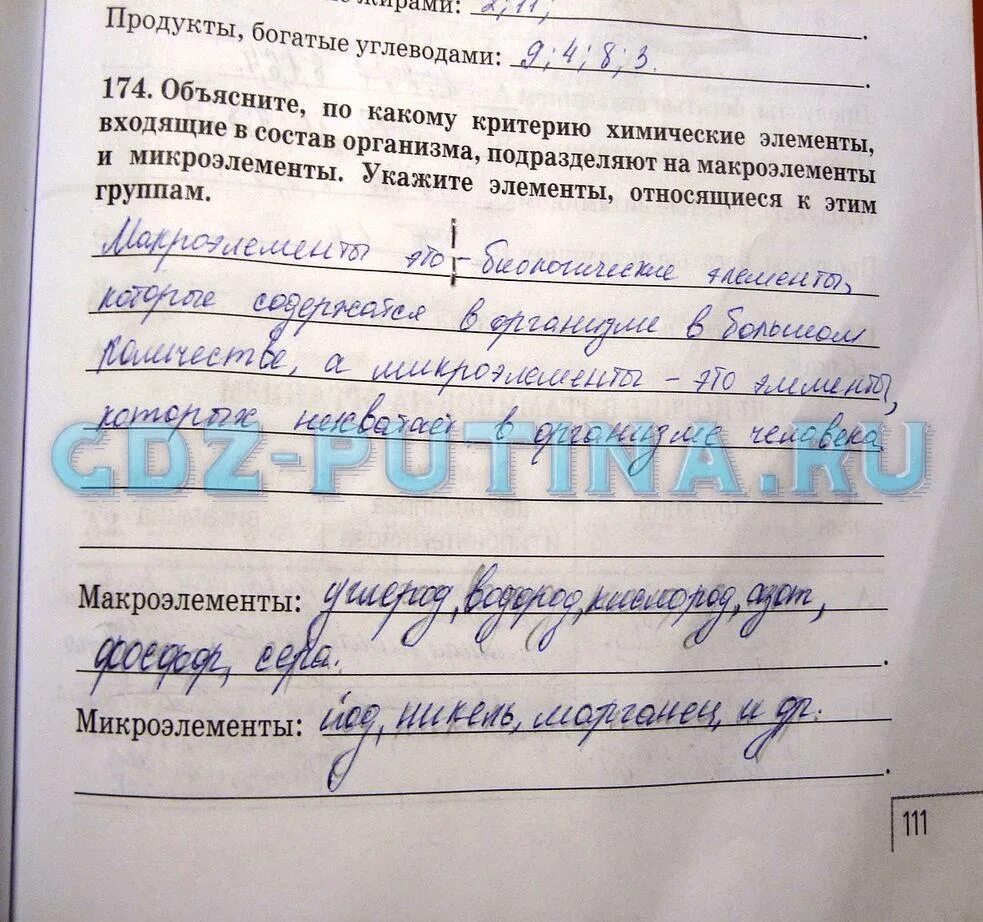 жирами: 2; 11;
Продукты, богатые углеводами: 9; 4; 8; 3.
174. Объясните, по какому критерию химические элементы,
входящие в состав организма, подразделяют на макроэлементы
и микроэлементы. Укажите элементы, относящиеся к этим
группам.
Макроэлементы это - биологические элементы,
которые содержатся в организме в большом
количестве, а микроэлементы - это элементы,
которых нехватает в организме человека
GDZ-PUTINA.RU
Макроэлементы: углерод, водород, кислород, азот,
фосфор, сера.
Микроэлементы: йод, никель, марганец, и др.
111